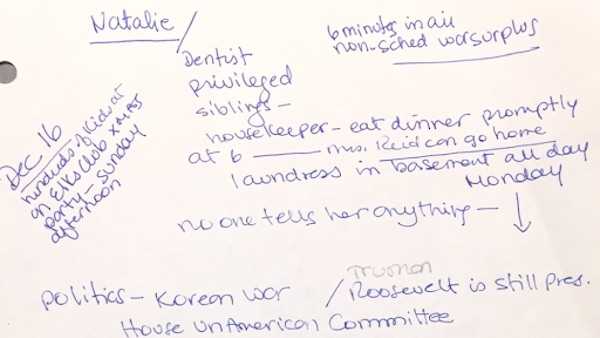 Natalie /
6 minutes in air
non-sched war surplus
Dentist
privileged
siblings –
housekeeper – eat dinner promptly
at 6 ——— Mrs. Reid can go home
laundress in basement all day
Monday
Dec 16
hundreds of kids at
an Elks Club xmas
party – Sunday
afternoon
no one tells her anything –
Truman
politics – Korean War / Roosevelt is still pres.
House UnAmerican Committee